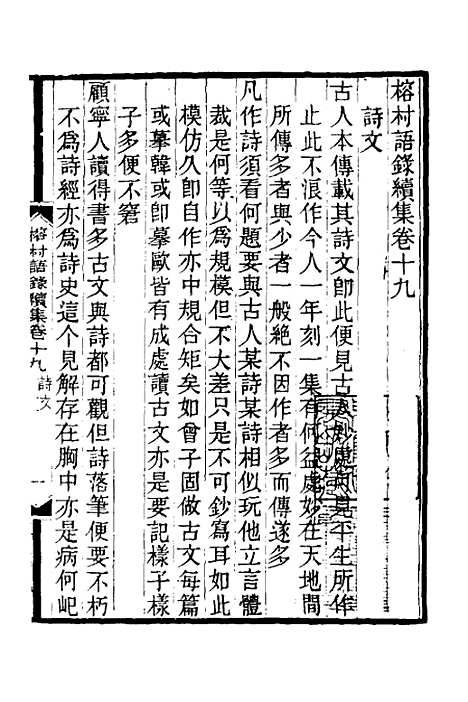 榕村語錄續集卷十九
詩文
古人本傳載其詩文卽此便見古人妙處可見平生所作
止此不浪作今人一年刻一集有何益處妙在天地間
所傳多者與少者一般絶不因作者多而傳遂多
凡作詩須看何題要與古人某詩某詩相似玩他立言體
裁是何等以爲規模但不大差只是不可鈔寫耳如此
模仿久卽自作亦中規合矩矣如曾子固做古文每篇
或摹韓或卽摹歐皆有成處讀古文亦是要記樣子樣
子多便不窘
顧寧人讀得書多古文與詩都可觀但詩落筆便要不朽
不爲詩經亦爲詩史這個見解存在胸中亦是病何屺
榕村語錄續集卷十九 詩文 一